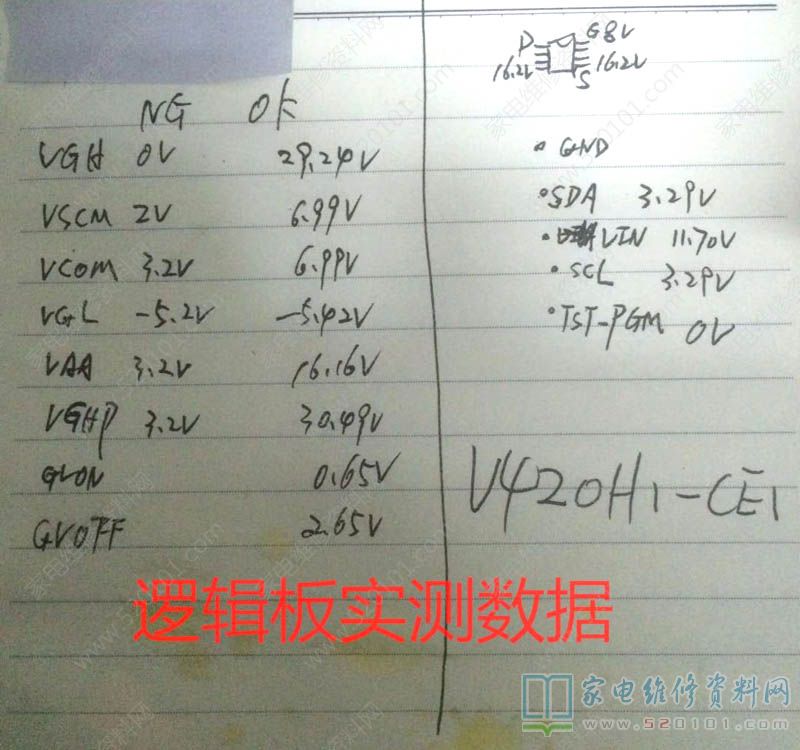 NG OK
VGH 0V 29.24V
VSCM 2V 6.99V
VCOM 3.2V 6.99V
VGL -5.2V -5.42V
VAA 3.2V 16.16V
VGHP 3.2V 30.49V
GVON 0.65V
GVOFF 2.65V
D G8V
16.2V 16.2V
S
GND
SDA 3.29V
VIN 11.70V
SCL 3.29V
TST-PGM 0V
V420H1-CE1
逻辑板实测数据
家电维修资料网
www.520101.com